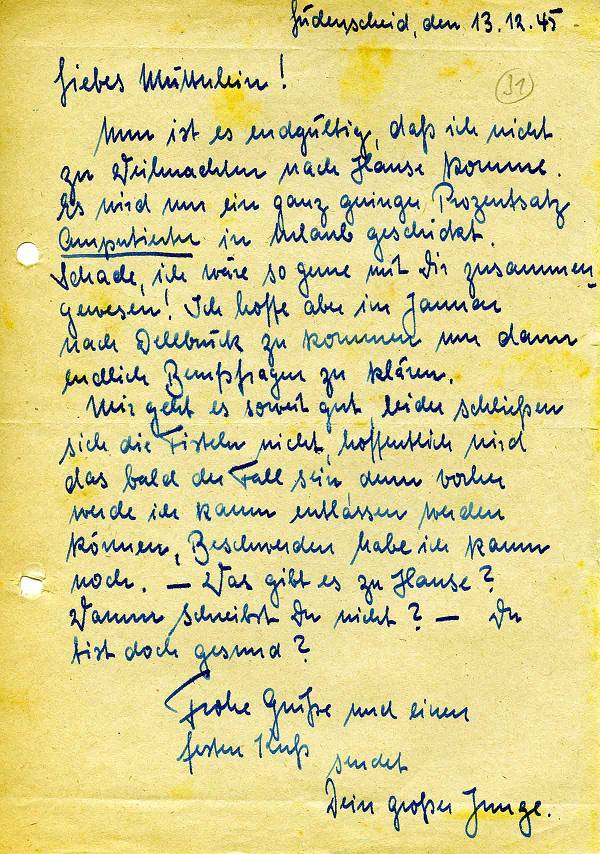 Lüdenscheid, den 13.12.45
31
Liebes Mütterlein!
Nun ist es endgültig, daß ich nicht
zu Weihnachten nach Hause komme.
Es wird nur ein ganz geringer Prozentsatz
Amputierter in Urlaub geschickt.
Schade, ich wäre so gerne mit Dir zusammen
gewesen! Ich hoffe aber im Januar
nach Dellbrück zu kommen um dann
endlich Berufsfragen zu klären.
Mir geht es soweit gut, leider schließen
sich die Fisteln nicht, hoffentlich wird
das bald der Fall sein denn vorher
werde ich kaum entlassen werden
können, Beschwerden habe ich kaum
noch. – Was gibt es zu Hause?
Warum schreibst Du nicht? – Du
bist doch gesund?
Frohe Grüße und einen
festen Kuß
sendet
Dein großer Junge.